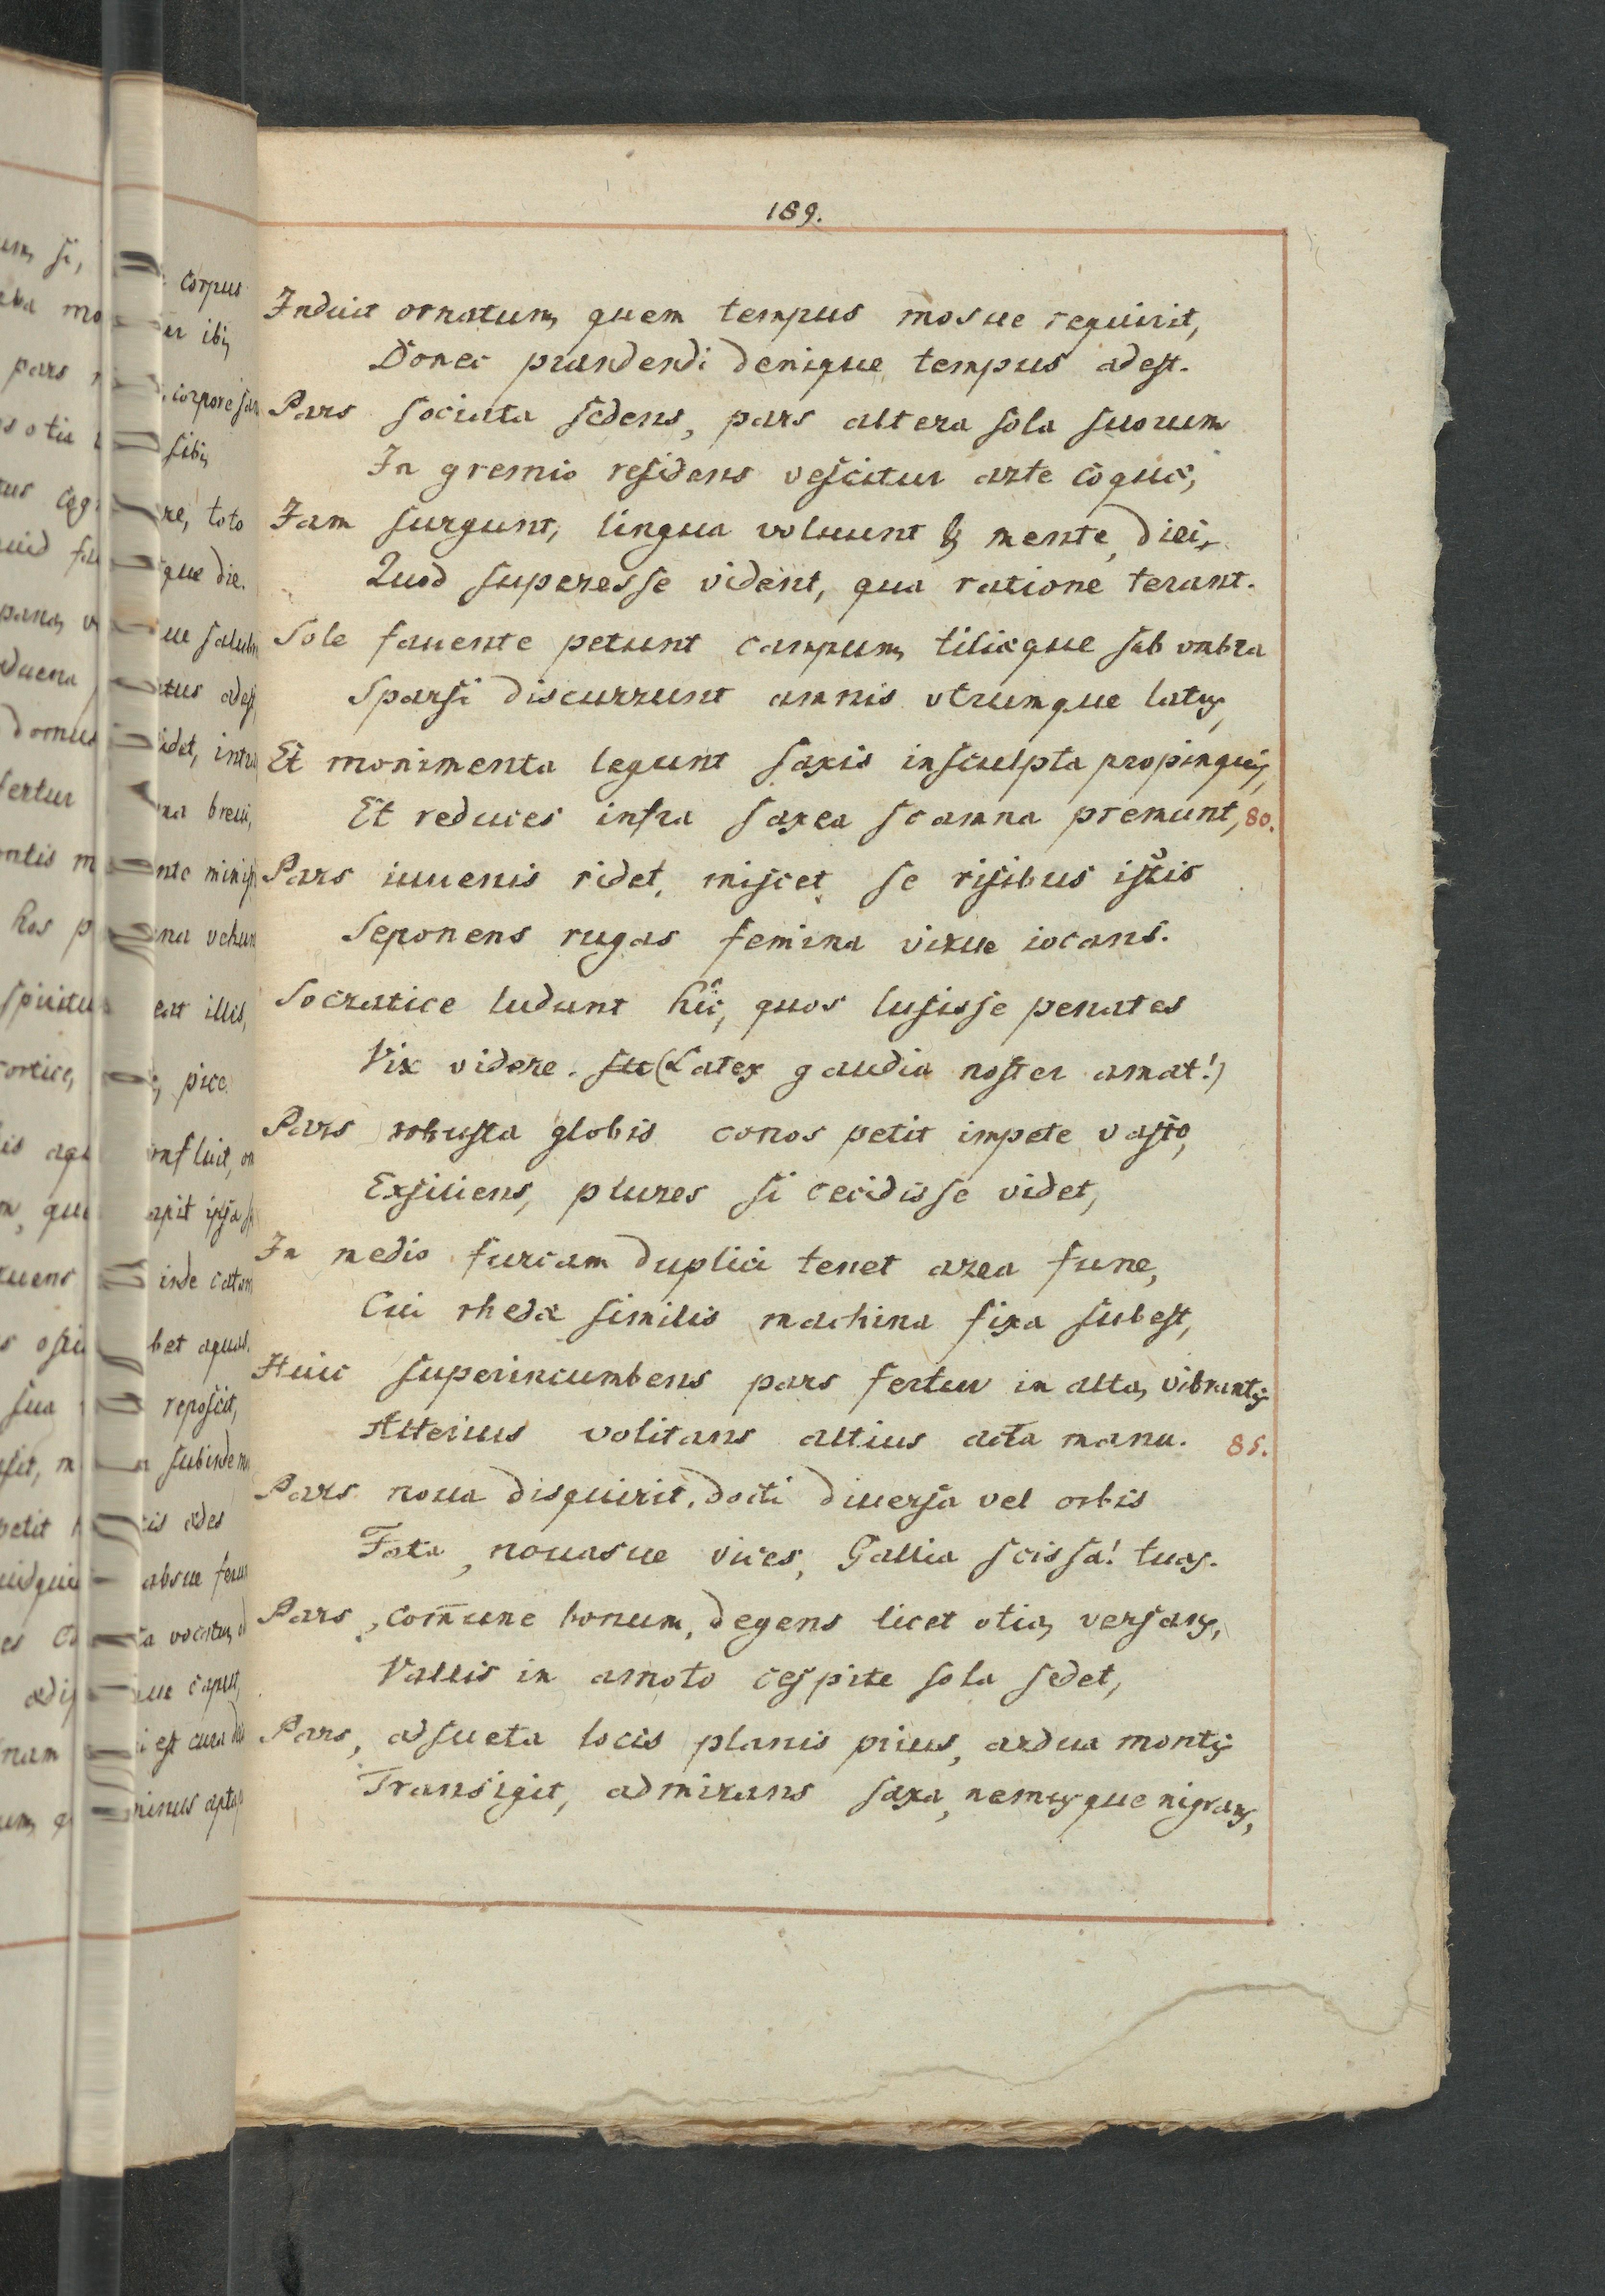 189.
Induit ornatum, quem tempus mosue requirit,
Donec prandendi denique tempus adest.
Pars sociata sedens, pars altera sola suorum
In gremio residens vescitur arte coqui;
Jam surgunt, lingua voluunt & mente, diei,
Quod superesse vident, qua ratione terant.
Sole fauente petunt campum, tiliæque sub vmbra
Sparsi discurrunt amnis vtrumque latus,
Et monimenta legunt saxis insculpta propinquis,
Et reduces infra saxea scamna premunt, 80.
Pars iuuenis ridet, miscet se risibus istis
Seponens rugas femina virue iocans.
Socratice ludunt hic, quos lusisse penates
Vix videre. (Latex gaudia noster amat!)
Pars robusta globis conos petit impete vasto,
Exsiliens, plures si cecidisse videt,
In medio furcam duplici tenet area fune,
Cui rhedæ similis machina fixa subest,
Huic superincumbens pars fertur in alta, vibrantis
Alterius volitans altius acta manu. 85.
Pars noua disquirit, docti diuersa vel orbis
Fata, nouasue vices, Gallia scissa! tuas.
Pars, com̄une bonum, degens licet otia, versans,
Vallis in amoto cespite sola sedet,
Pars, adsueta locis planis prius, ardua montis
Transigit, admirans saxa, nemusque nigrans,
corpus
ibi,
corpore
sibi,
toto
que die.
pars
illis,
pice.
inde
reposcit,